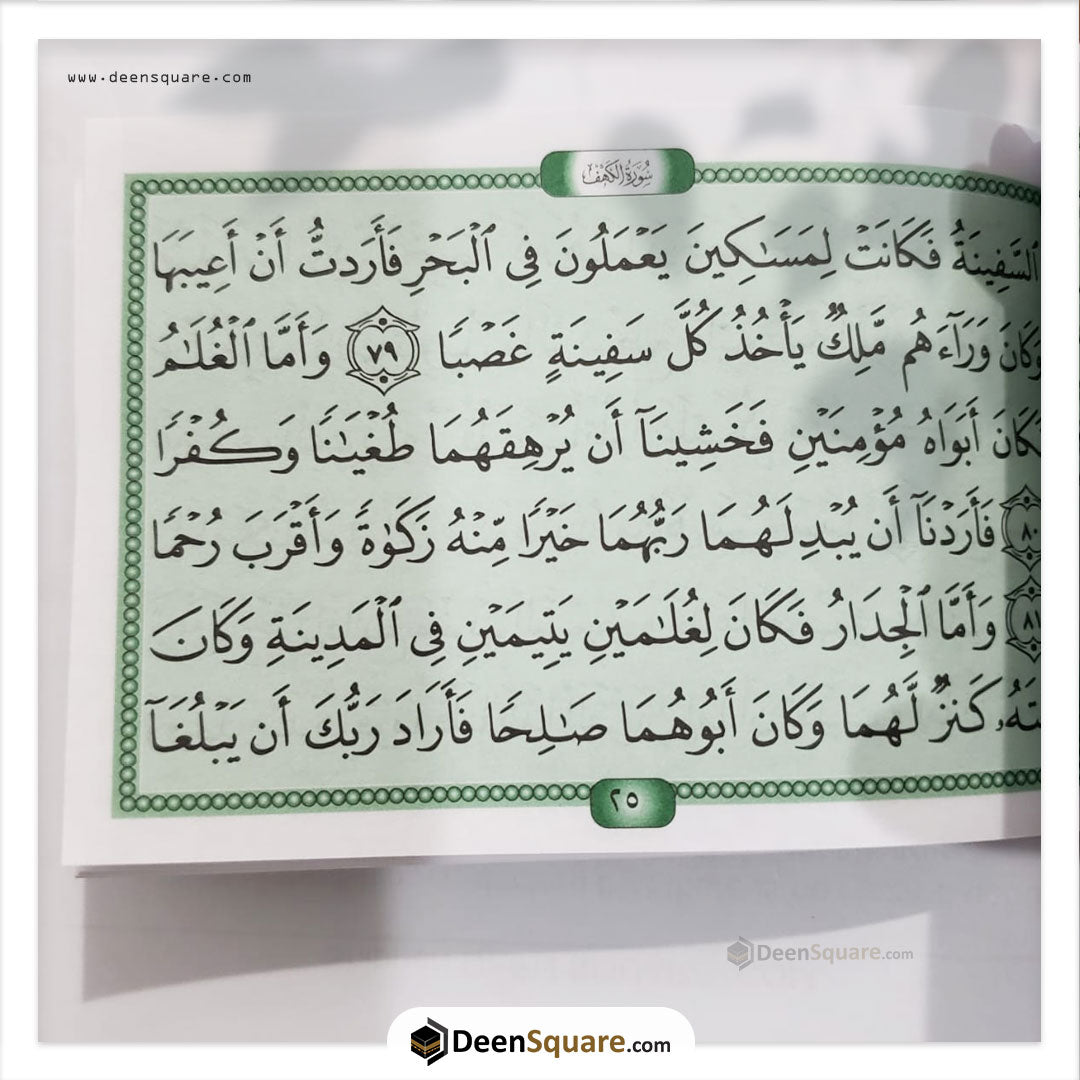 www.deensquare.com
سُورَةُ الكَهْفِ
ٱلسَّفِينَةُ فَكَانَتۡ لِمَسَٰكِينَ يَعۡمَلُونَ فِي ٱلۡبَحۡرِ فَأَرَدتُّ أَنۡ أَعِيبَهَا
وَكَانَ وَرَآءَهُم مَّلِكٞ يَأۡخُذُ كُلَّ سَفِينَةٍ غَصۡبٗا ٧٩ وَأَمَّا ٱلۡغُلَٰمُ
فَكَانَ أَبَوَاهُ مُؤۡمِنَيۡنِ فَخَشِينَآ أَن يُرۡهِقَهُمَا طُغۡيَٰنٗا وَكُفۡرٗا
٨٠ فَأَرَدۡنَآ أَن يُبۡدِلَهُمَا رَبُّهُمَا خَيۡرٗا مِّنۡهُ زَكَوٰةٗ وَأَقۡرَبَ رُحۡمٗا
٨١ وَأَمَّا ٱلۡجِدَارُ فَكَانَ لِغُلَٰمَيۡنِ يَتِيمَيۡنِ فِي ٱلۡمَدِينَةِ وَكَانَ
كَنزٞ لَّهُمَا وَكَانَ أَبُوهُمَا صَٰلِحٗا فَأَرَادَ رَبُّكَ أَن يَبۡلُغَآ
٢٥
DeenSquare.com
DeenSquare.com